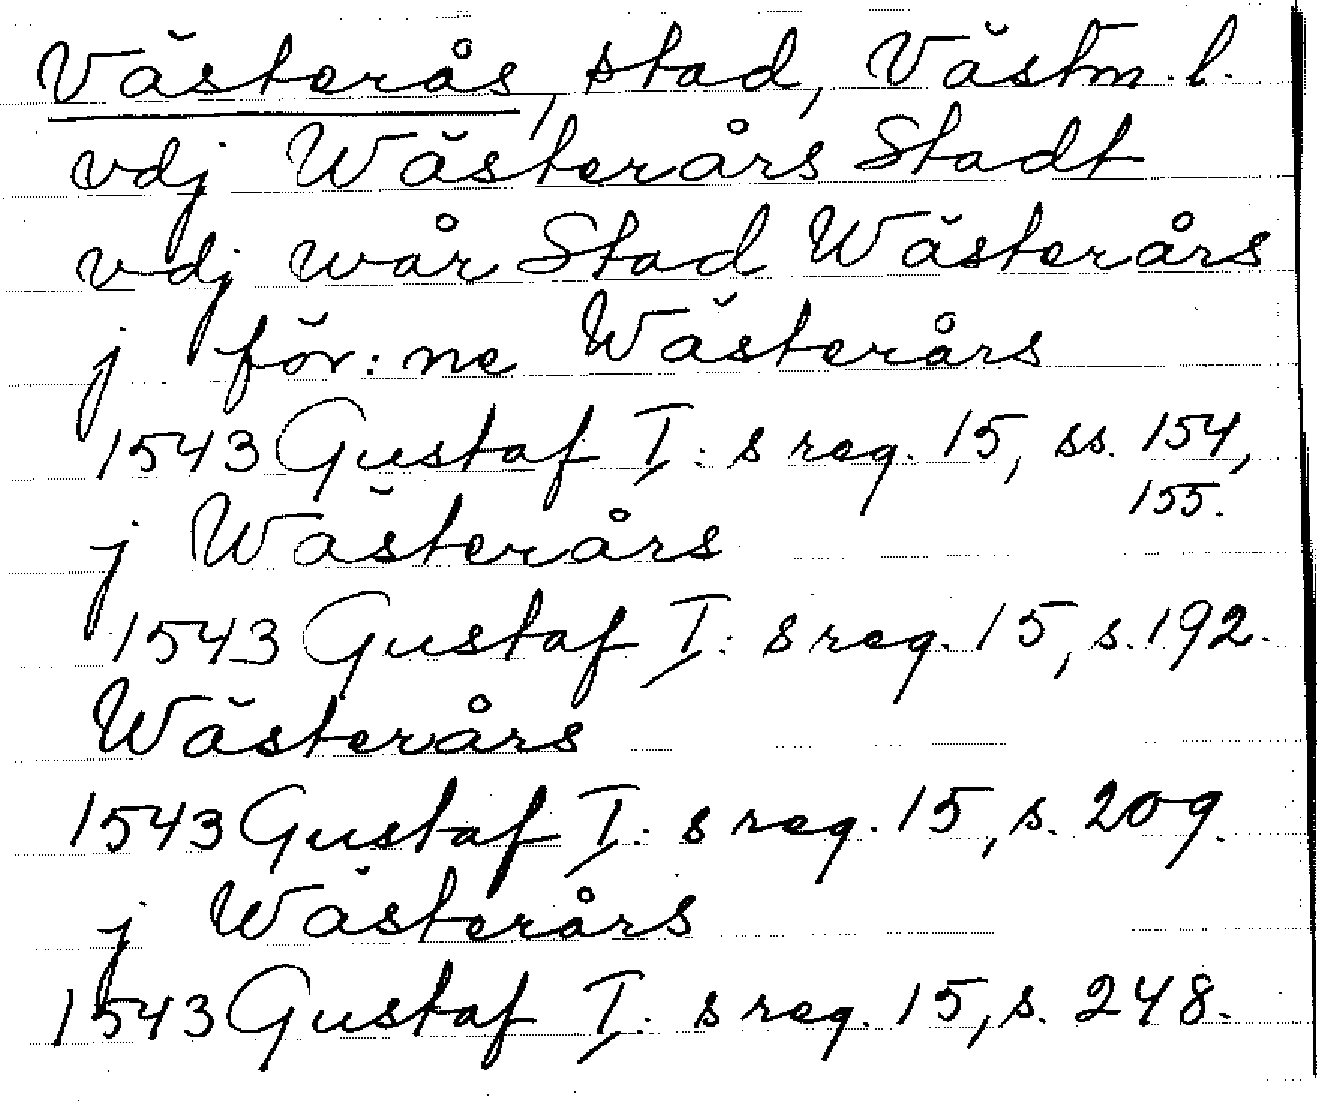 Västerås, stad, Västm. l.
vdj Wästerårs Stadt
vdj wår Stad Wästerårs
j för:ne Wästerårs
1543 Gustaf I:s reg. 15, ss. 154,
155.
j Wästerårs
1543 Gustaf I:s reg. 15, s. 192.
Wästerårs
1543 Gustaf I:s reg. 15, s. 209.
j Wästerårs
1543 Gustaf I:s reg. 15, s. 248.